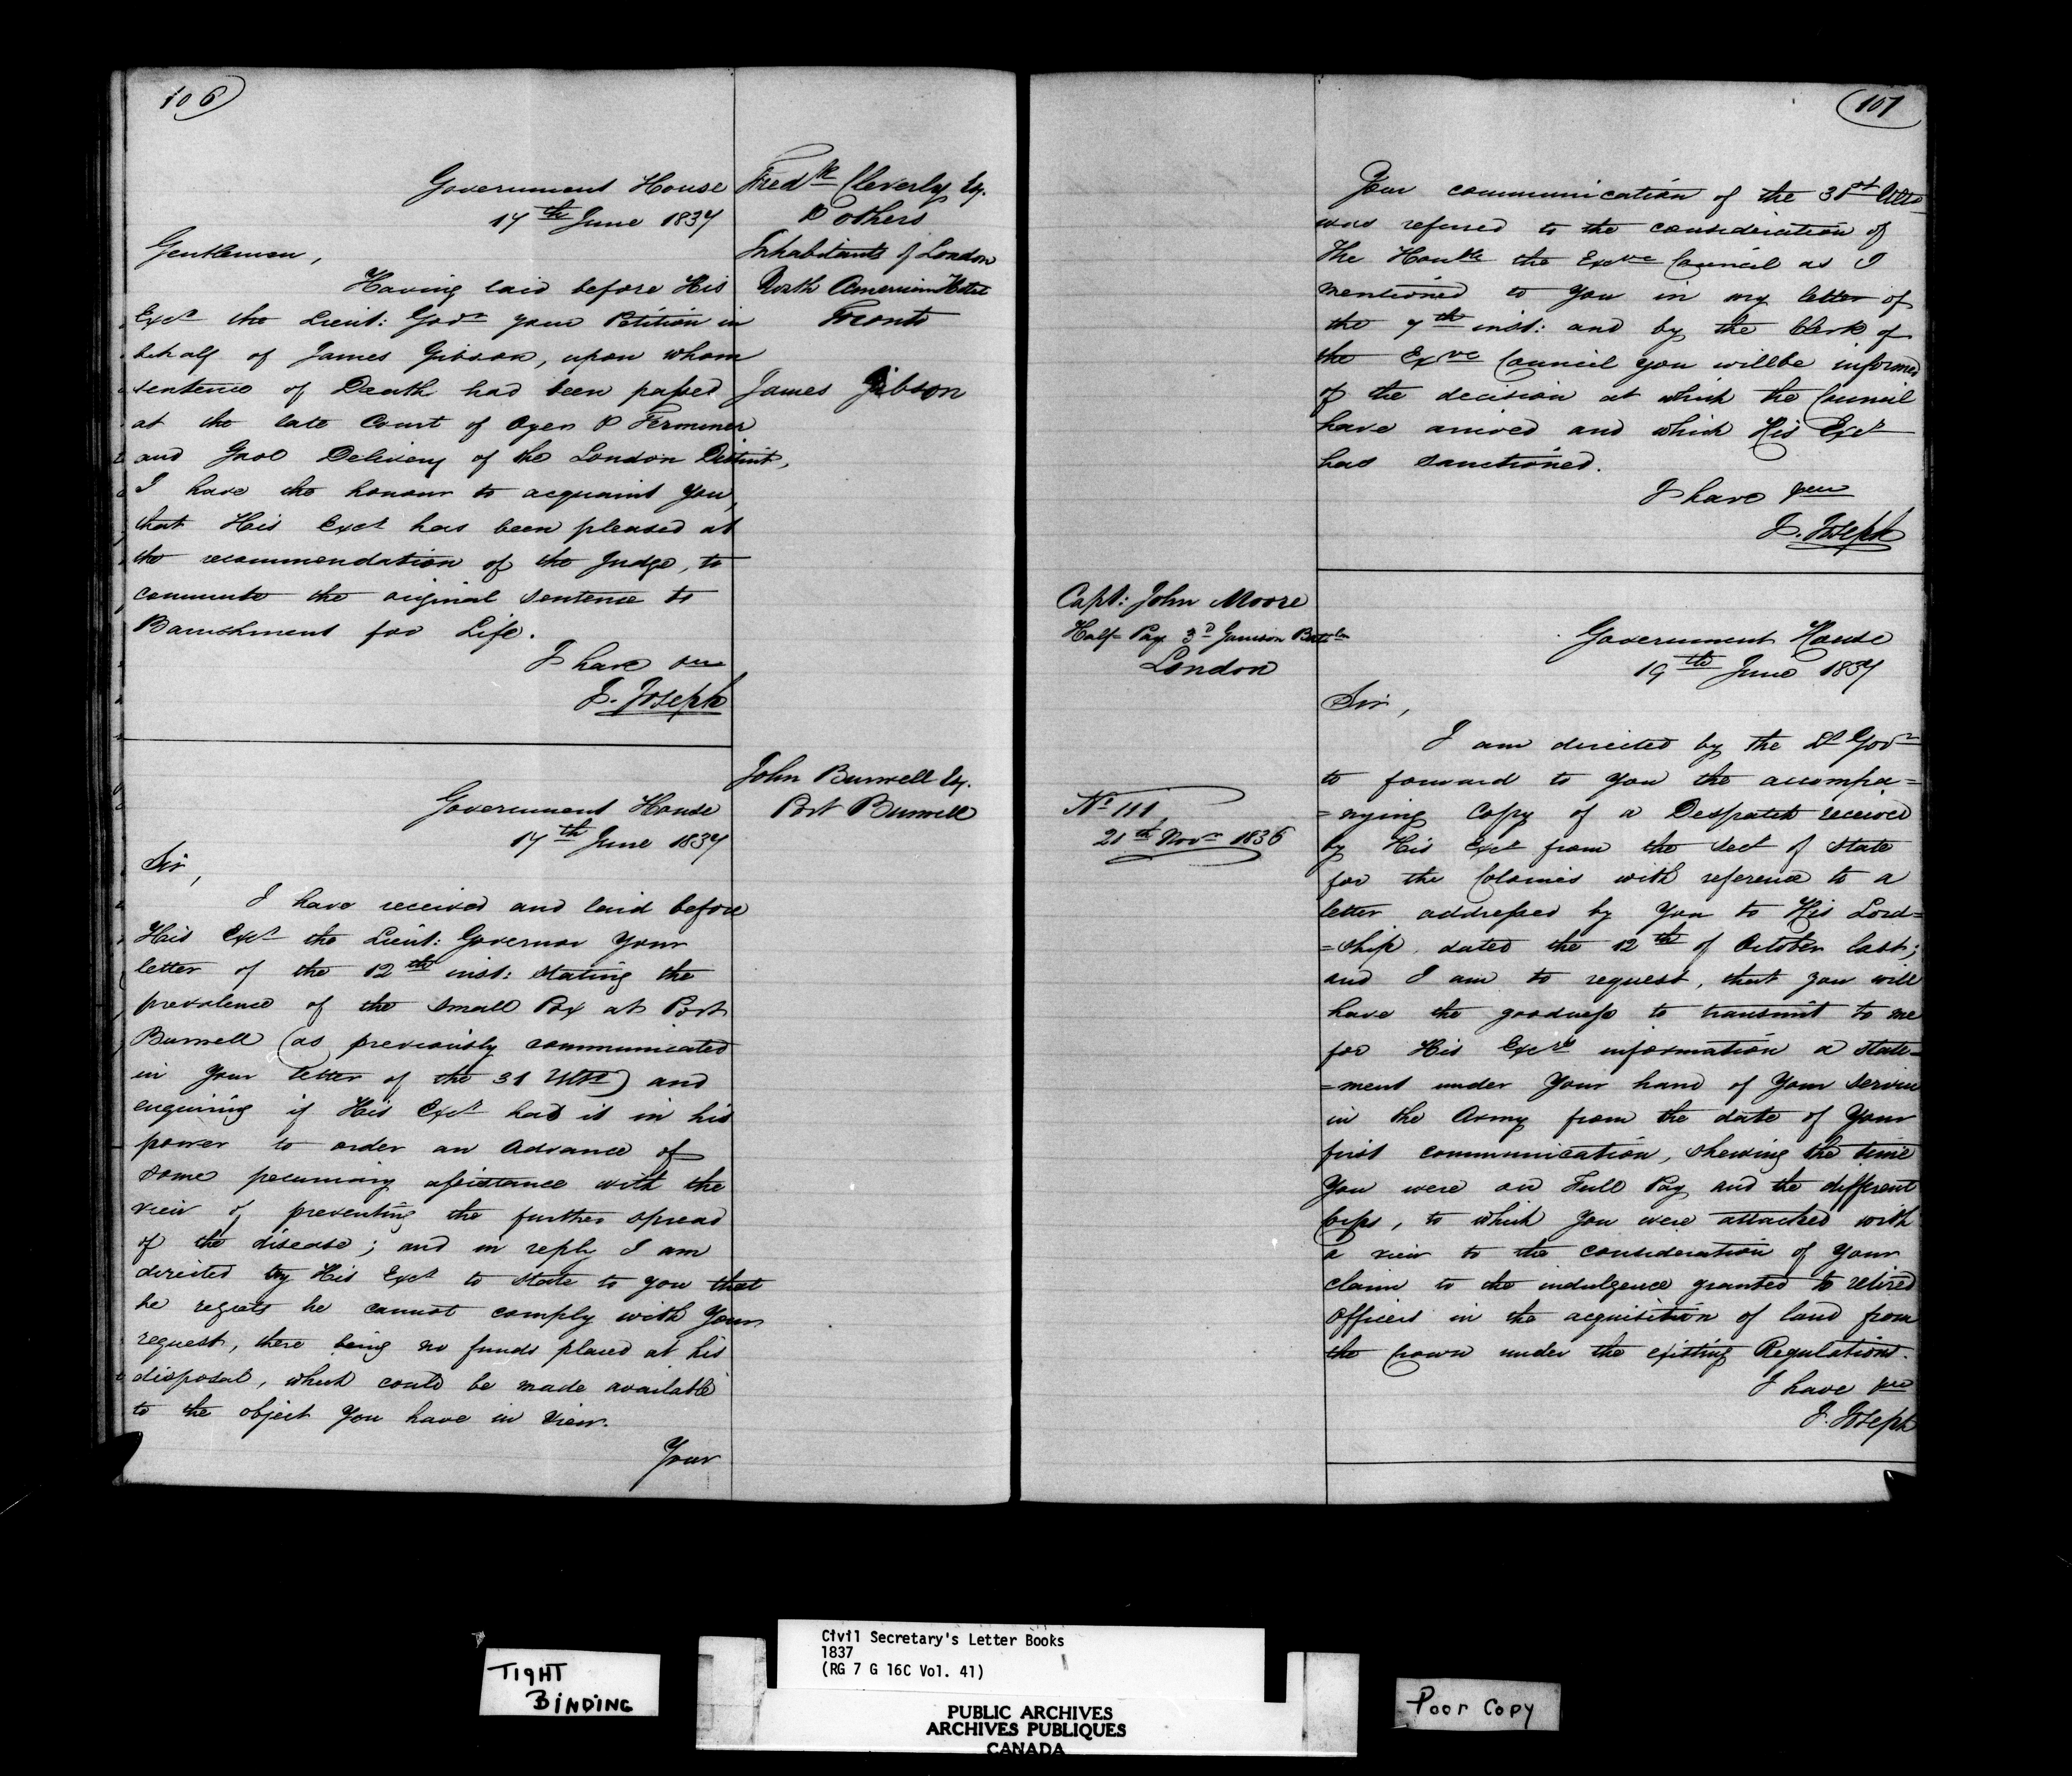 106
Government House
17th June 1837
Gentlemen,
Having laid before His
Excy the Lieut: Govr your Petition in
behalf of James Gibson, upon whom
sentence of Death had been passed
at the late Court of Oyer & Terminer
and Gaol Delivery of the London District,
I have the honour to acquaint you,
that His Excy has been pleased at
the recommendation of the Judge, to
commute the original sentence to
Banishment for Life.
I have &c
J. Joseph
Fredk Cleverly Esq.
& others
Inhabitants of London
North American Hotel
Toronto
James Gibson
Government House
17th June 1837
Sir,
I have received and laid before
His Excy the Lieut: Governor Your
letter of the 12th inst: stating the
prevalence of the Small Pox at Port
Burwell (as previously communicated
in Your letter of the 31 Ulto) and
enquiring if His Excy had it in his
power to order an advance of
some pecuniary assistance with the
view of preventing the further spread
of the disease; and in reply I am
directed by His Excy to state to you that
he regrets he cannot comply with Your
request, there being no funds placed at his
disposal, which could be made available
to the object You have in view.
Your
John Burwell Esq.
Port Burwell
107
Your communication of the 31st Ulto
was referred to the consideration of
The Honble the Exve Council as I
mentioned to You in my letter of
the 7th inst: and by the Clerk of
the Exve Council you will be informed
of the decision at which the Council
have arrived and which His Excy
has sanctioned.
I have &c
J. Joseph
Capt: John Moore
Half Pay 3d Garrison Battaln
London
No 111
21th Novr 1836
Government House
19th June 1837
Sir,
I am directed by the Lt Govr
to forward to You the accompa=
=nying Copy of a Despatch received
by His Excy from the Sect of State
for the Colonies with reference to a
letter addressed by You to His Lord=
=ship, dated the 12th of October last;
and I am to request, that you will
have the goodness to transmit to me
for His Excy's information a state=
=ment under Your hand of Your Service
in the Army from the date of Your
first communication, shewing the time
You were on Full Pay and the different
Corps, to which You were attached with
a view to the consideration of Your
claim to the indulgence granted to retired
Officers in the acquisition of land from
the Crown under the existing Regulations.
I have &c
J. Joseph
TIGHT
BINDING
Civil Secretary's Letter Books
1837
(RG 7 G 16C Vol. 41)
PUBLIC ARCHIVES
ARCHIVES PUBLIQUES
CANADA
Poor Copy